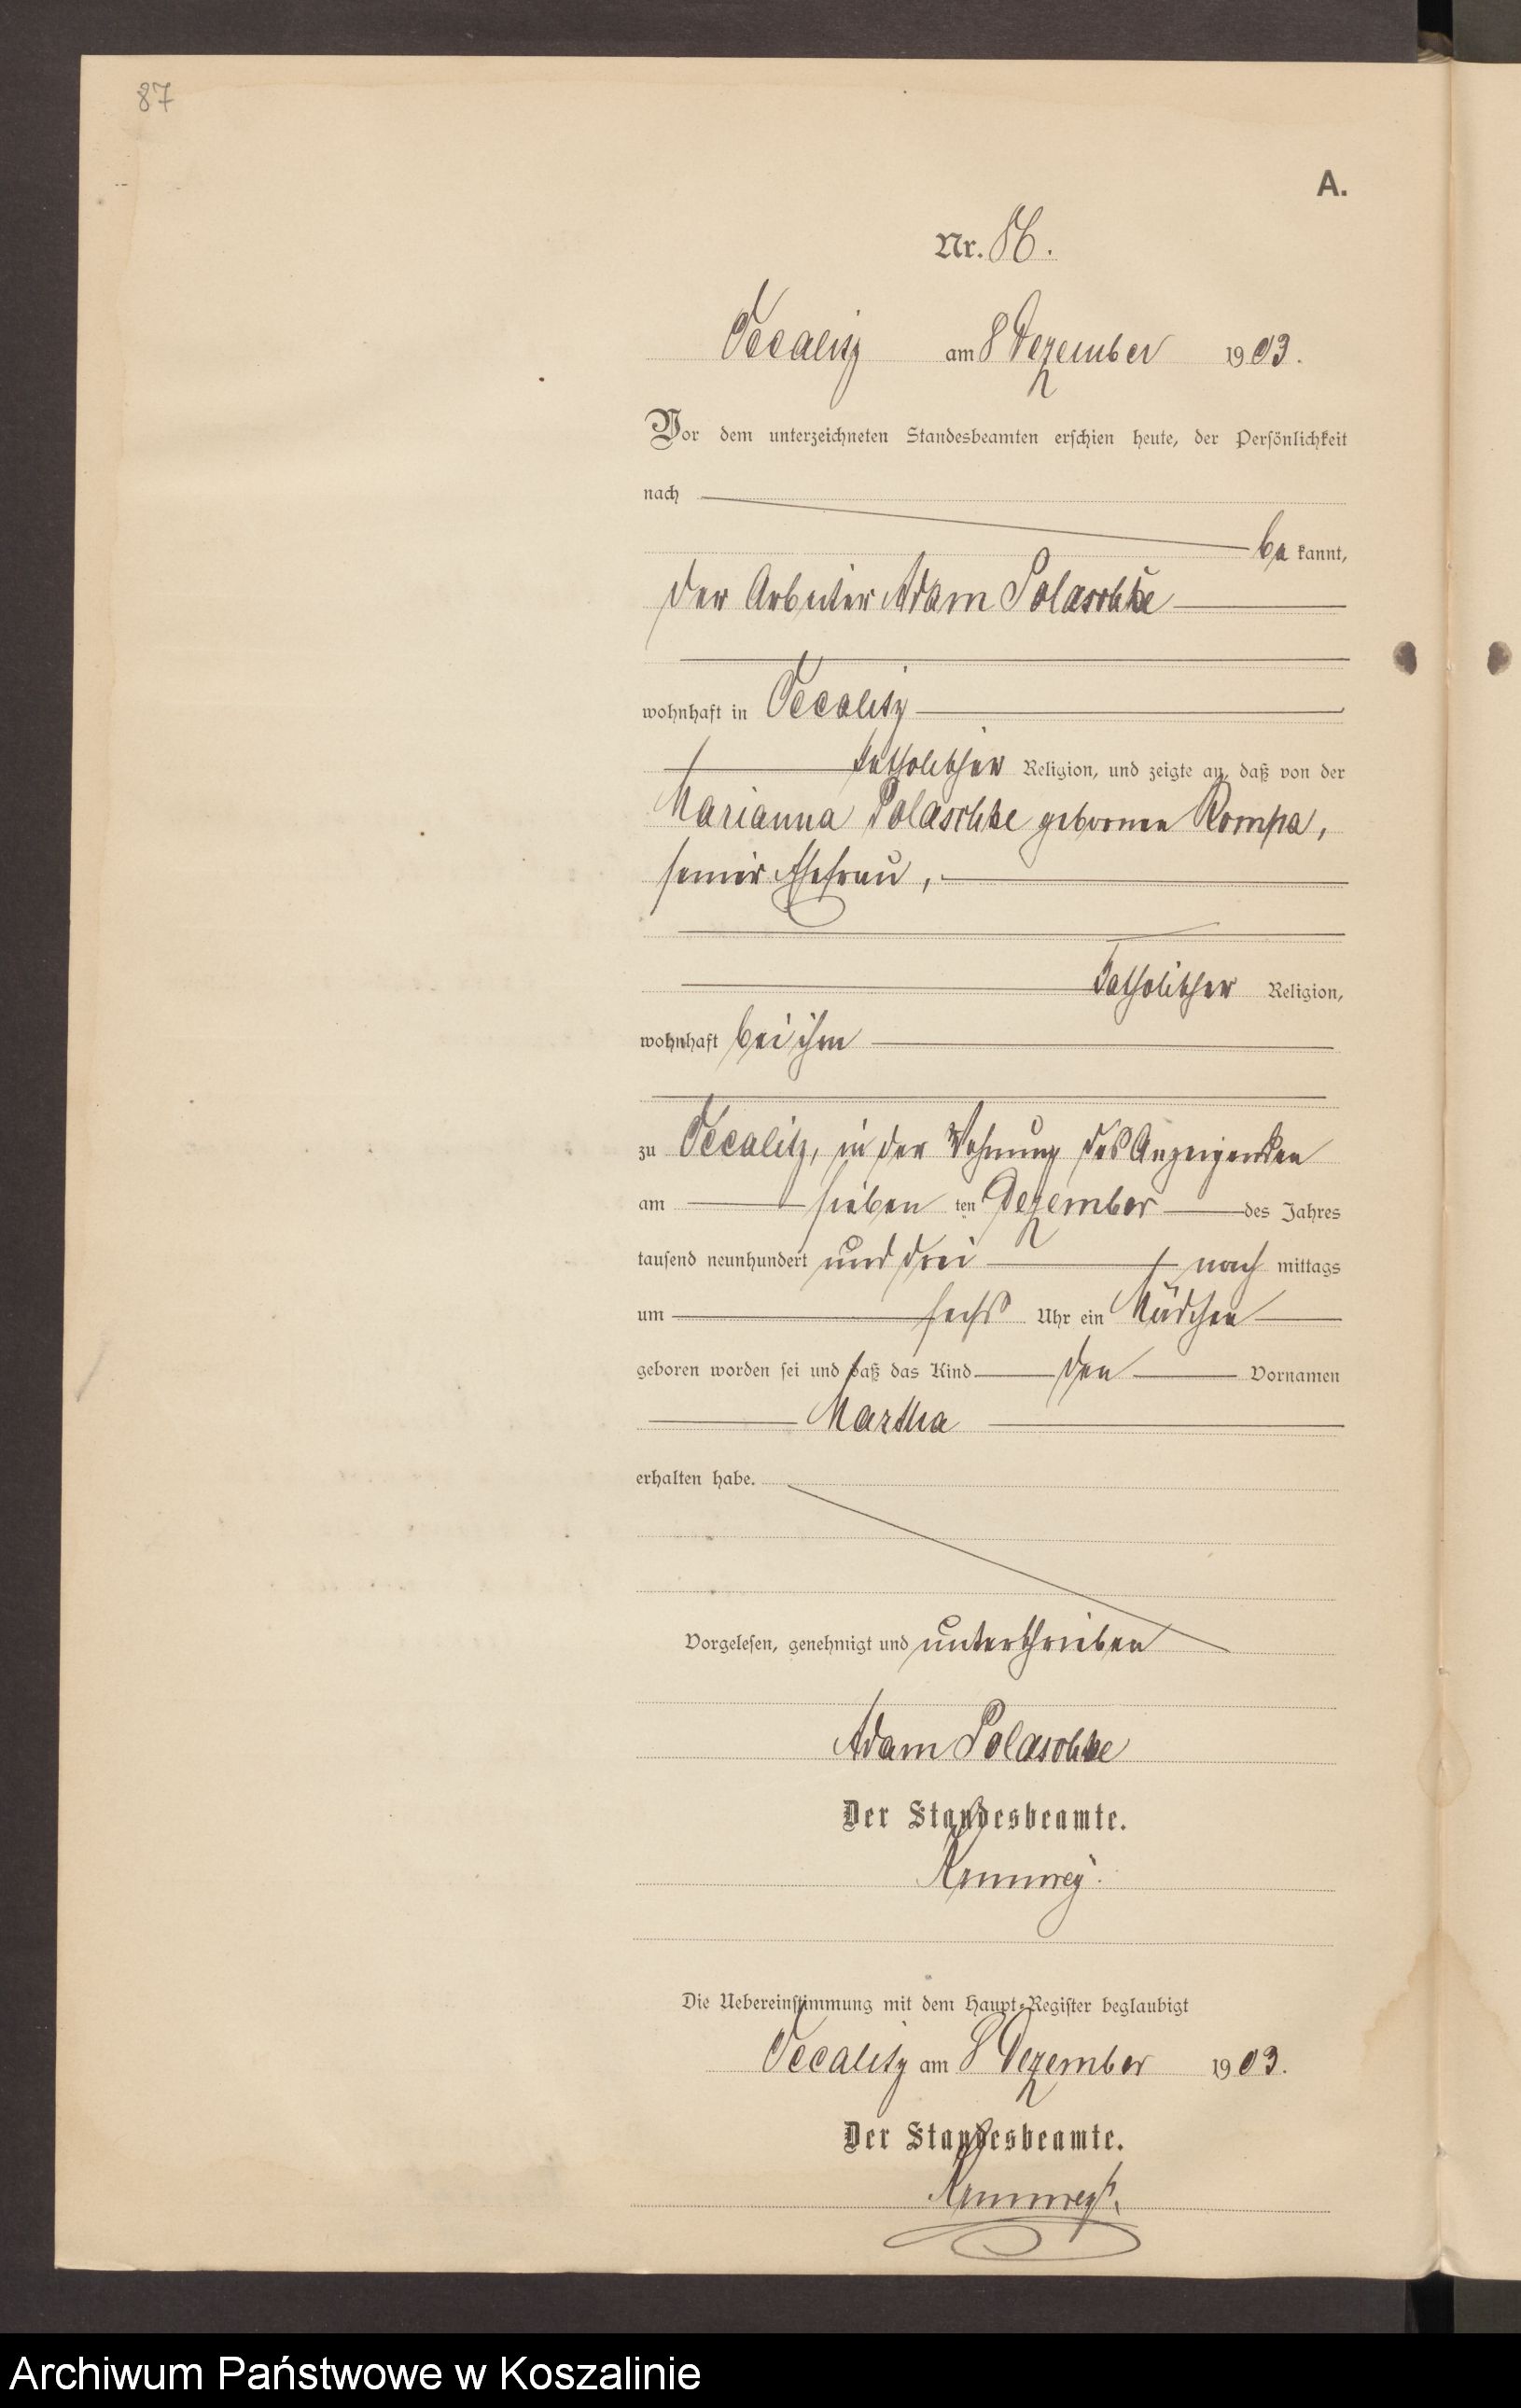 87
A.
Nr. 86.
Oecalitz am 8 Dezember 1903.
Vor dem unterzeichneten Standesbeamten erschien heute, der Persönlichkeit
nach
be kannt,
der Arbeiter Adam Polaschke
wohnhaft in Oecalitz
katholischer Religion, und zeigte an, daß von der
Marianna Polaschke geborenen Rompa,
seiner Ehefrau,
katholischer Religion,
wohnhaft bei ihm
zu Oecalitz, in der Wohnung des Anzeigenden
am sieben ten Dezember des Jahres
tausend neunhundert und drei nach mittags
um sechs Uhr ein Mädchen
geboren worden sei und daß das Kind den Vornamen
Martha
erhalten habe.
Vorgelesen, genehmigt und unterschrieben
Adam Polaschke
Der Standesbeamte.
Die Uebereinstimmung mit dem Haupt-Register beglaubigt
Oecalitz am 8 Dezember 1903.
Der Standesbeamte.
Archiwum Państwowe w Koszalinie